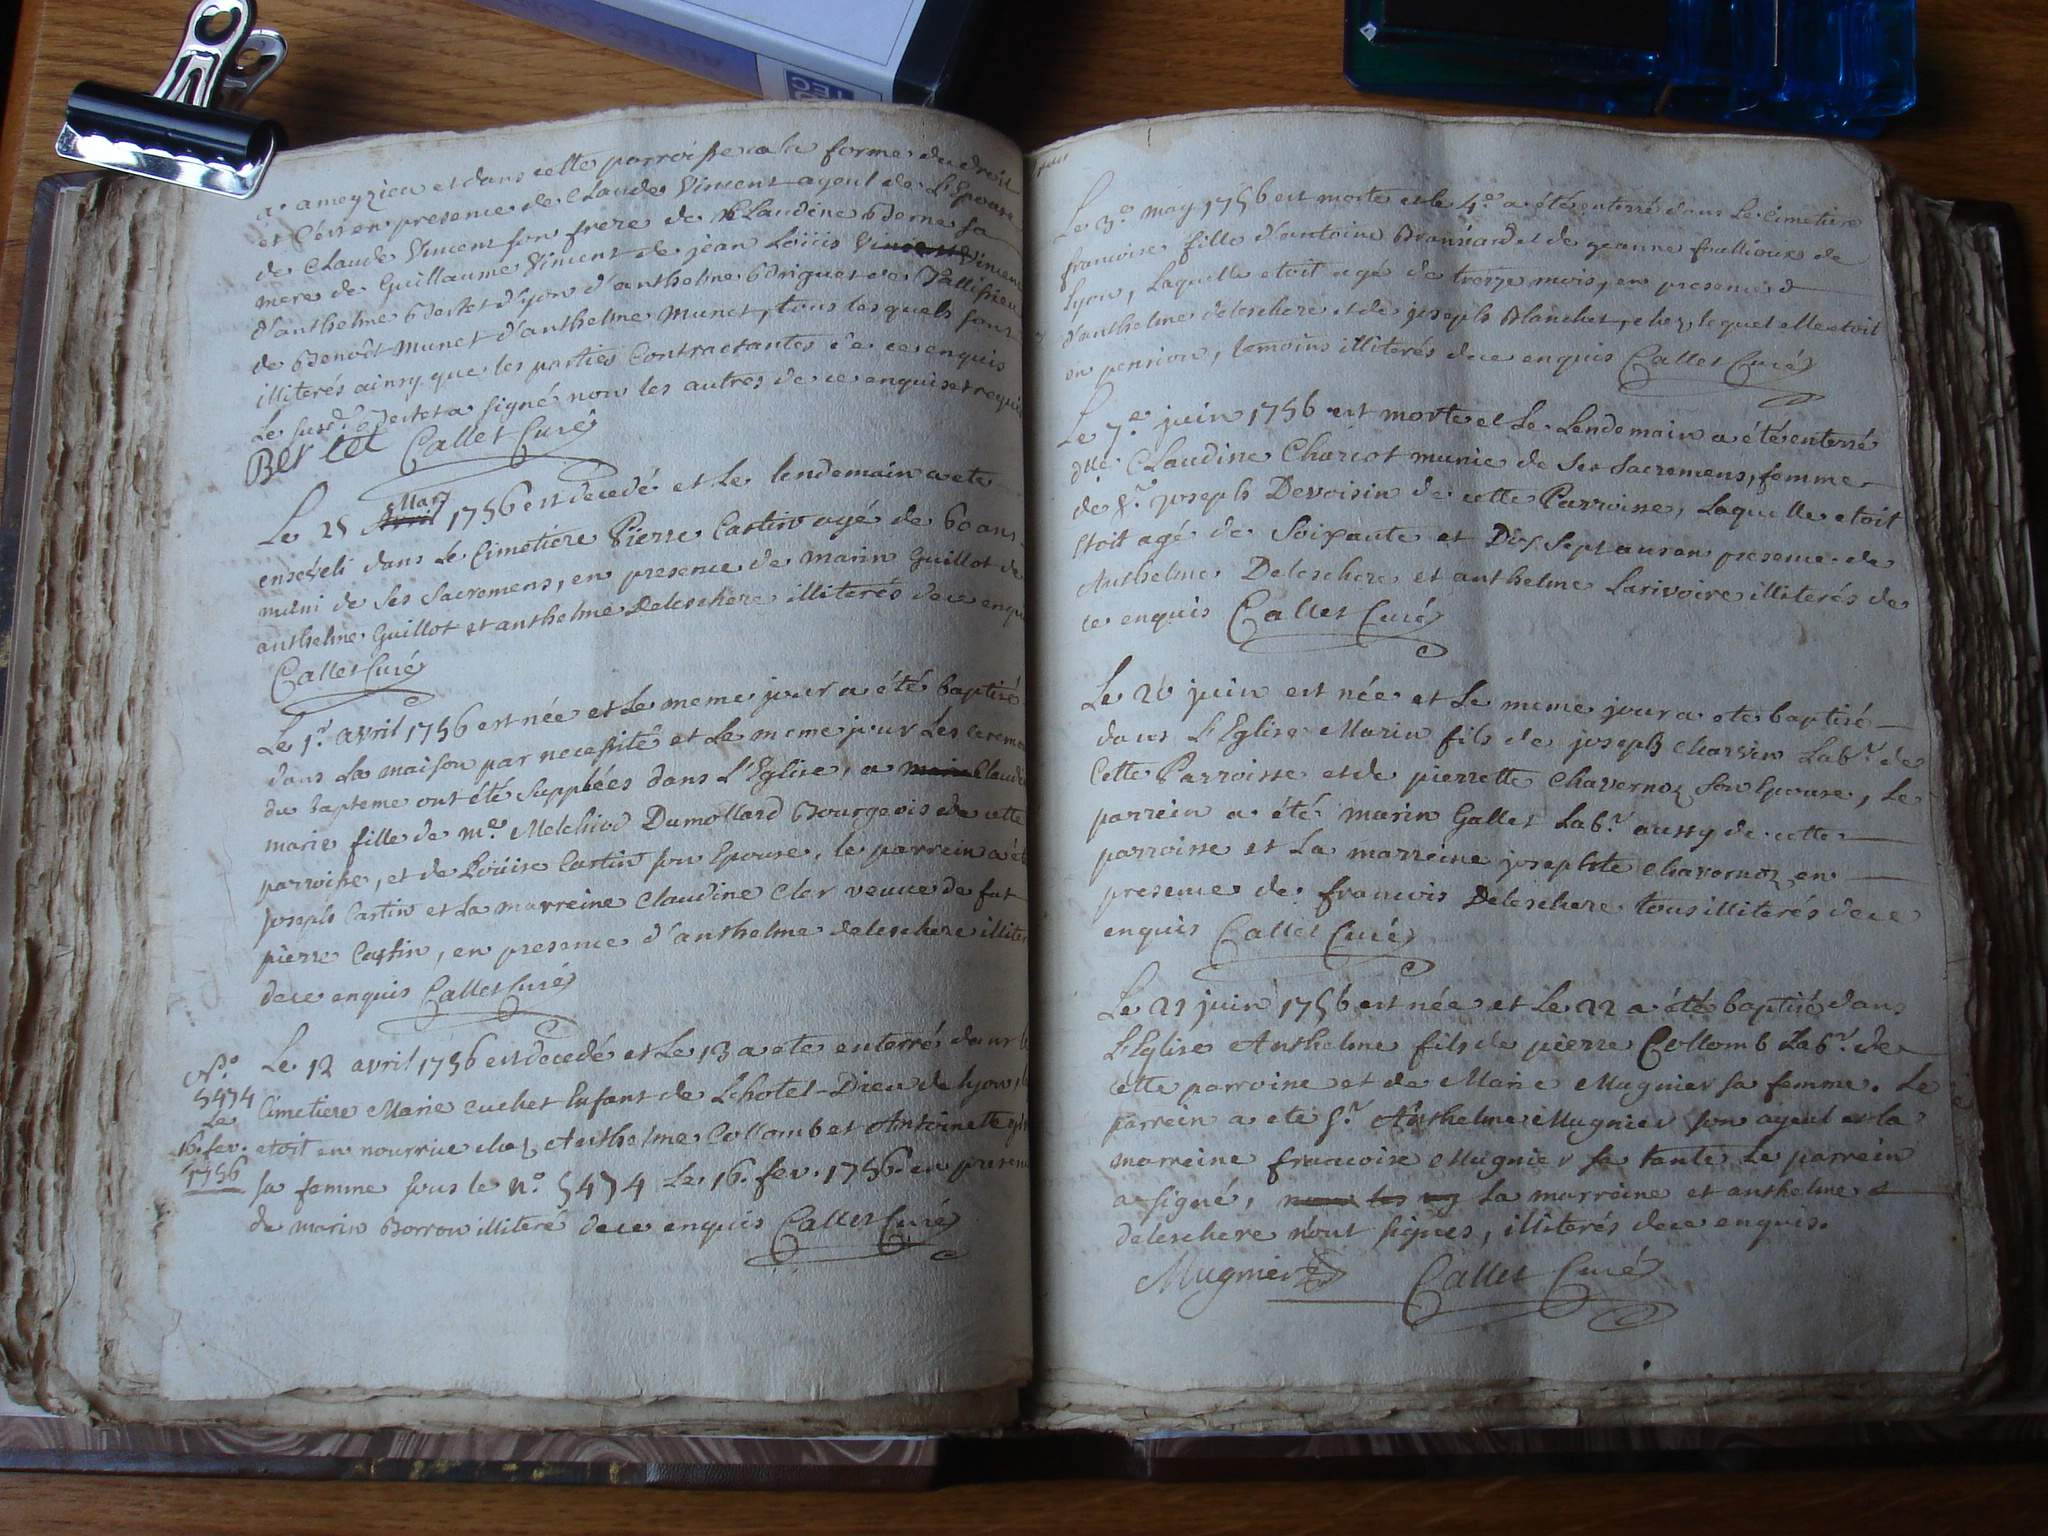 a ameyzieu et dans cette parroisse a la forme du droit
et c'est en presence de Claude Vincent ayeul de L'Epouse
de Claude Vincent son frere de Claudine Berne sa
mere de Guillaume Vincent de jean Loüis Vincent
d'anthelme Bertet d'yon d'anthelme Briguet de Tallissieu
de Benoît Munet d'anthelme Munet, tous lesquels sont
illiterés ainsy que les parties Contractantes de ce enquis
Le susd. Bertet a signé non les autres de ce enquis et requis
Bertet Callet Curé
Mars
Le 25 avril 1756 est decedé et Le lendemain a ete
enseveli dans Le Cimetiere Pierre Castin agé de 60 ans
muni de ses Sacremens, en presence de marin Guillot de
anthelme Guillot et anthelme Deleschere illiterés de ce enquis
Callet Curé
Le 1r. avril 1756 est née et Le meme jour a été baptisé
dans La maison par necessité et Le meme jour Les ceremo
du bapteme ont été Suppléées dans L'Eglise, a marie Claudi
marie fille de me. Melchiod Dumollard Bourgeois de cette
parroisse, et de Loüise Castin son Epouse, le parrein a ét
joseph Castin et La marreine Claudine Cler veuve de fut
pierre Castin, en presence d'anthelme deleschere illiter
de ce enquis Callet Curé
No.
5474
Le
16. fev.
1756
Le 12 avril 1756 est decedé et Le 13 a ete enterré dans le
Cimetiere Marie cuchet Enfant de L'hotel-Dieu de Lyon,
etoit en nourrice chez Anthelme Collomb et Antoinette
sa femme sous le no. 5474 Le 16. fev. 1756. en presen
de marin Borron illiteré de ce enquis Callet Curé
Le 3e. may 1756 est morte et le 4e. a été enterré dans Le Cimetiere
francoise fille d'antoine Bransiard et de jeanne fralliour de
Lyon, Laquelle etoit agé de treize mois, en presence
d'anthelme deleschere et de joseph Blanchet, chez lequel elle etoit
en pension, temoins illiterés de ce enquis Callet Curé
Le 7e. juin 1756 est morte et Le Lendemain a été enterré
dlle. Claudine Charcot munie de Ses Sacremens, femme
de Sr. joseph Devoisin de cette Parroisse, Laquelle etoit
Etoit agé de Soixante et Dix Sept ans en presence de
Anthelme Deleschere et anthelme Larivoire illiterés de
ce enquis Callet Curé
Le 20 juin est née et Le meme jour a ete baptisé
dans L'Eglise Marin fils de joseph Charvin Labr. de
Cette Parroisse et de pierrette Chavernoz son Epouse, Le
parrein a été marin Gallet Labr. aussy de cette
parroisse et La marreine josephte Chavernoz en
presence de francois Deleschere tous illiterés de ce
enquis Callet Curé
Le 21 juin 1756 est née et Le 22 a été baptisé dans
L'Eglise Anthelme fils de pierre Collomb Labr. de
cette parroisse et de Marie Mugnier sa femme. Le
parrein a ete Sr. Anthelme Mugnier son ayeul et la
marreine francoise Mugnier sa tante Le parrein
a signé, non les La marreine et anthelme
deleschere n'ont signes, illiterés de ce enquis.
Mugnier Callet Curé